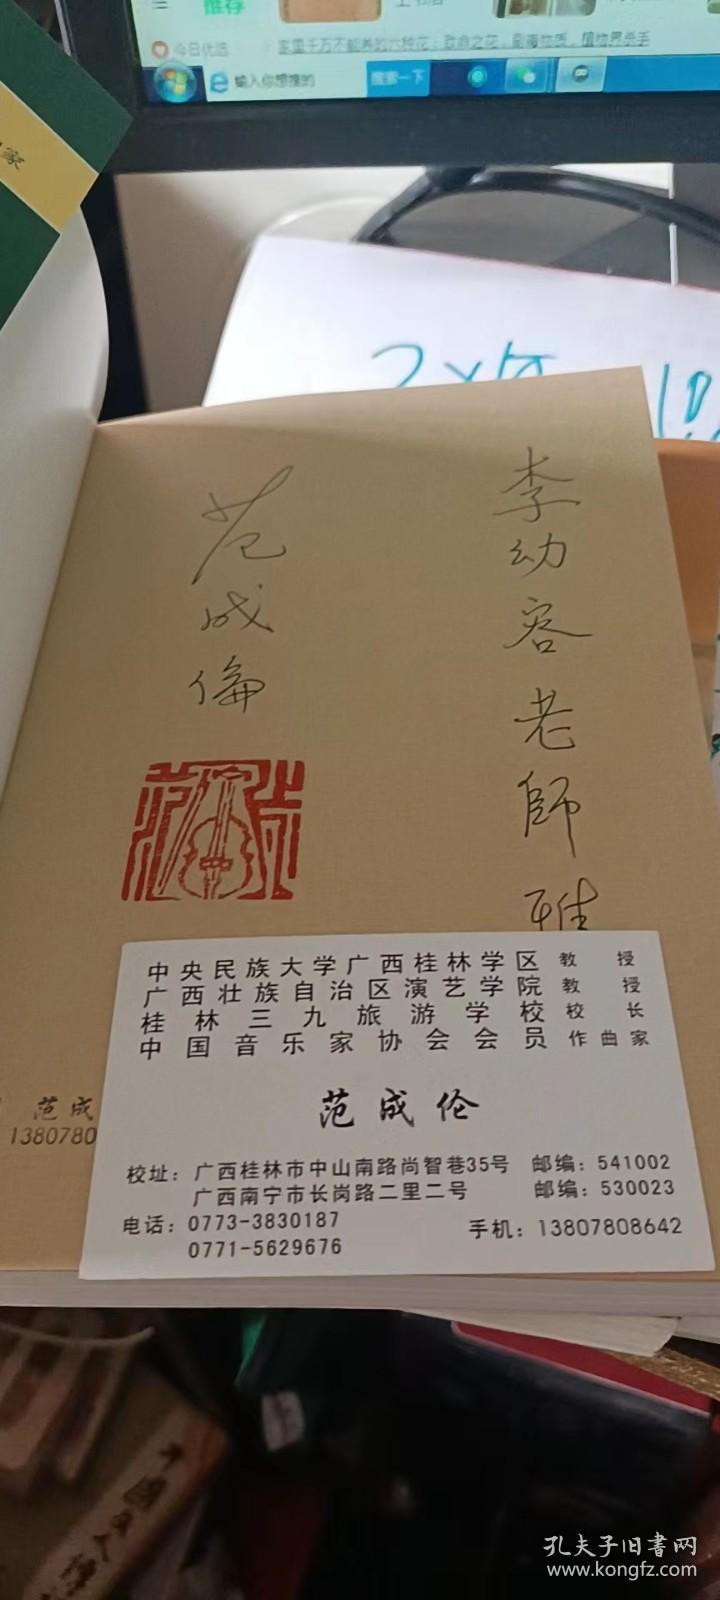 推荐
今日优选
家里千万不能养的六种花：致命之花，剧毒物质，植物界杀手
输入你想搜的
搜索一下
家
李幼容老师雅
范成倫
中央民族大学广西桂林学区 教授
广西壮族自治区演艺学院 教授
桂林三九旅游学校 校长
中国音乐家协会会员 作曲家
范成伦
校址：广西桂林市中山南路尚智巷35号 邮编：541002
广西南宁市长岗路二里二号 邮编：530023
电话：0773-3830187 手机：13807808642
0771-5629676
范成
1380780
中国
孔夫子旧书网
www.kongfz.com